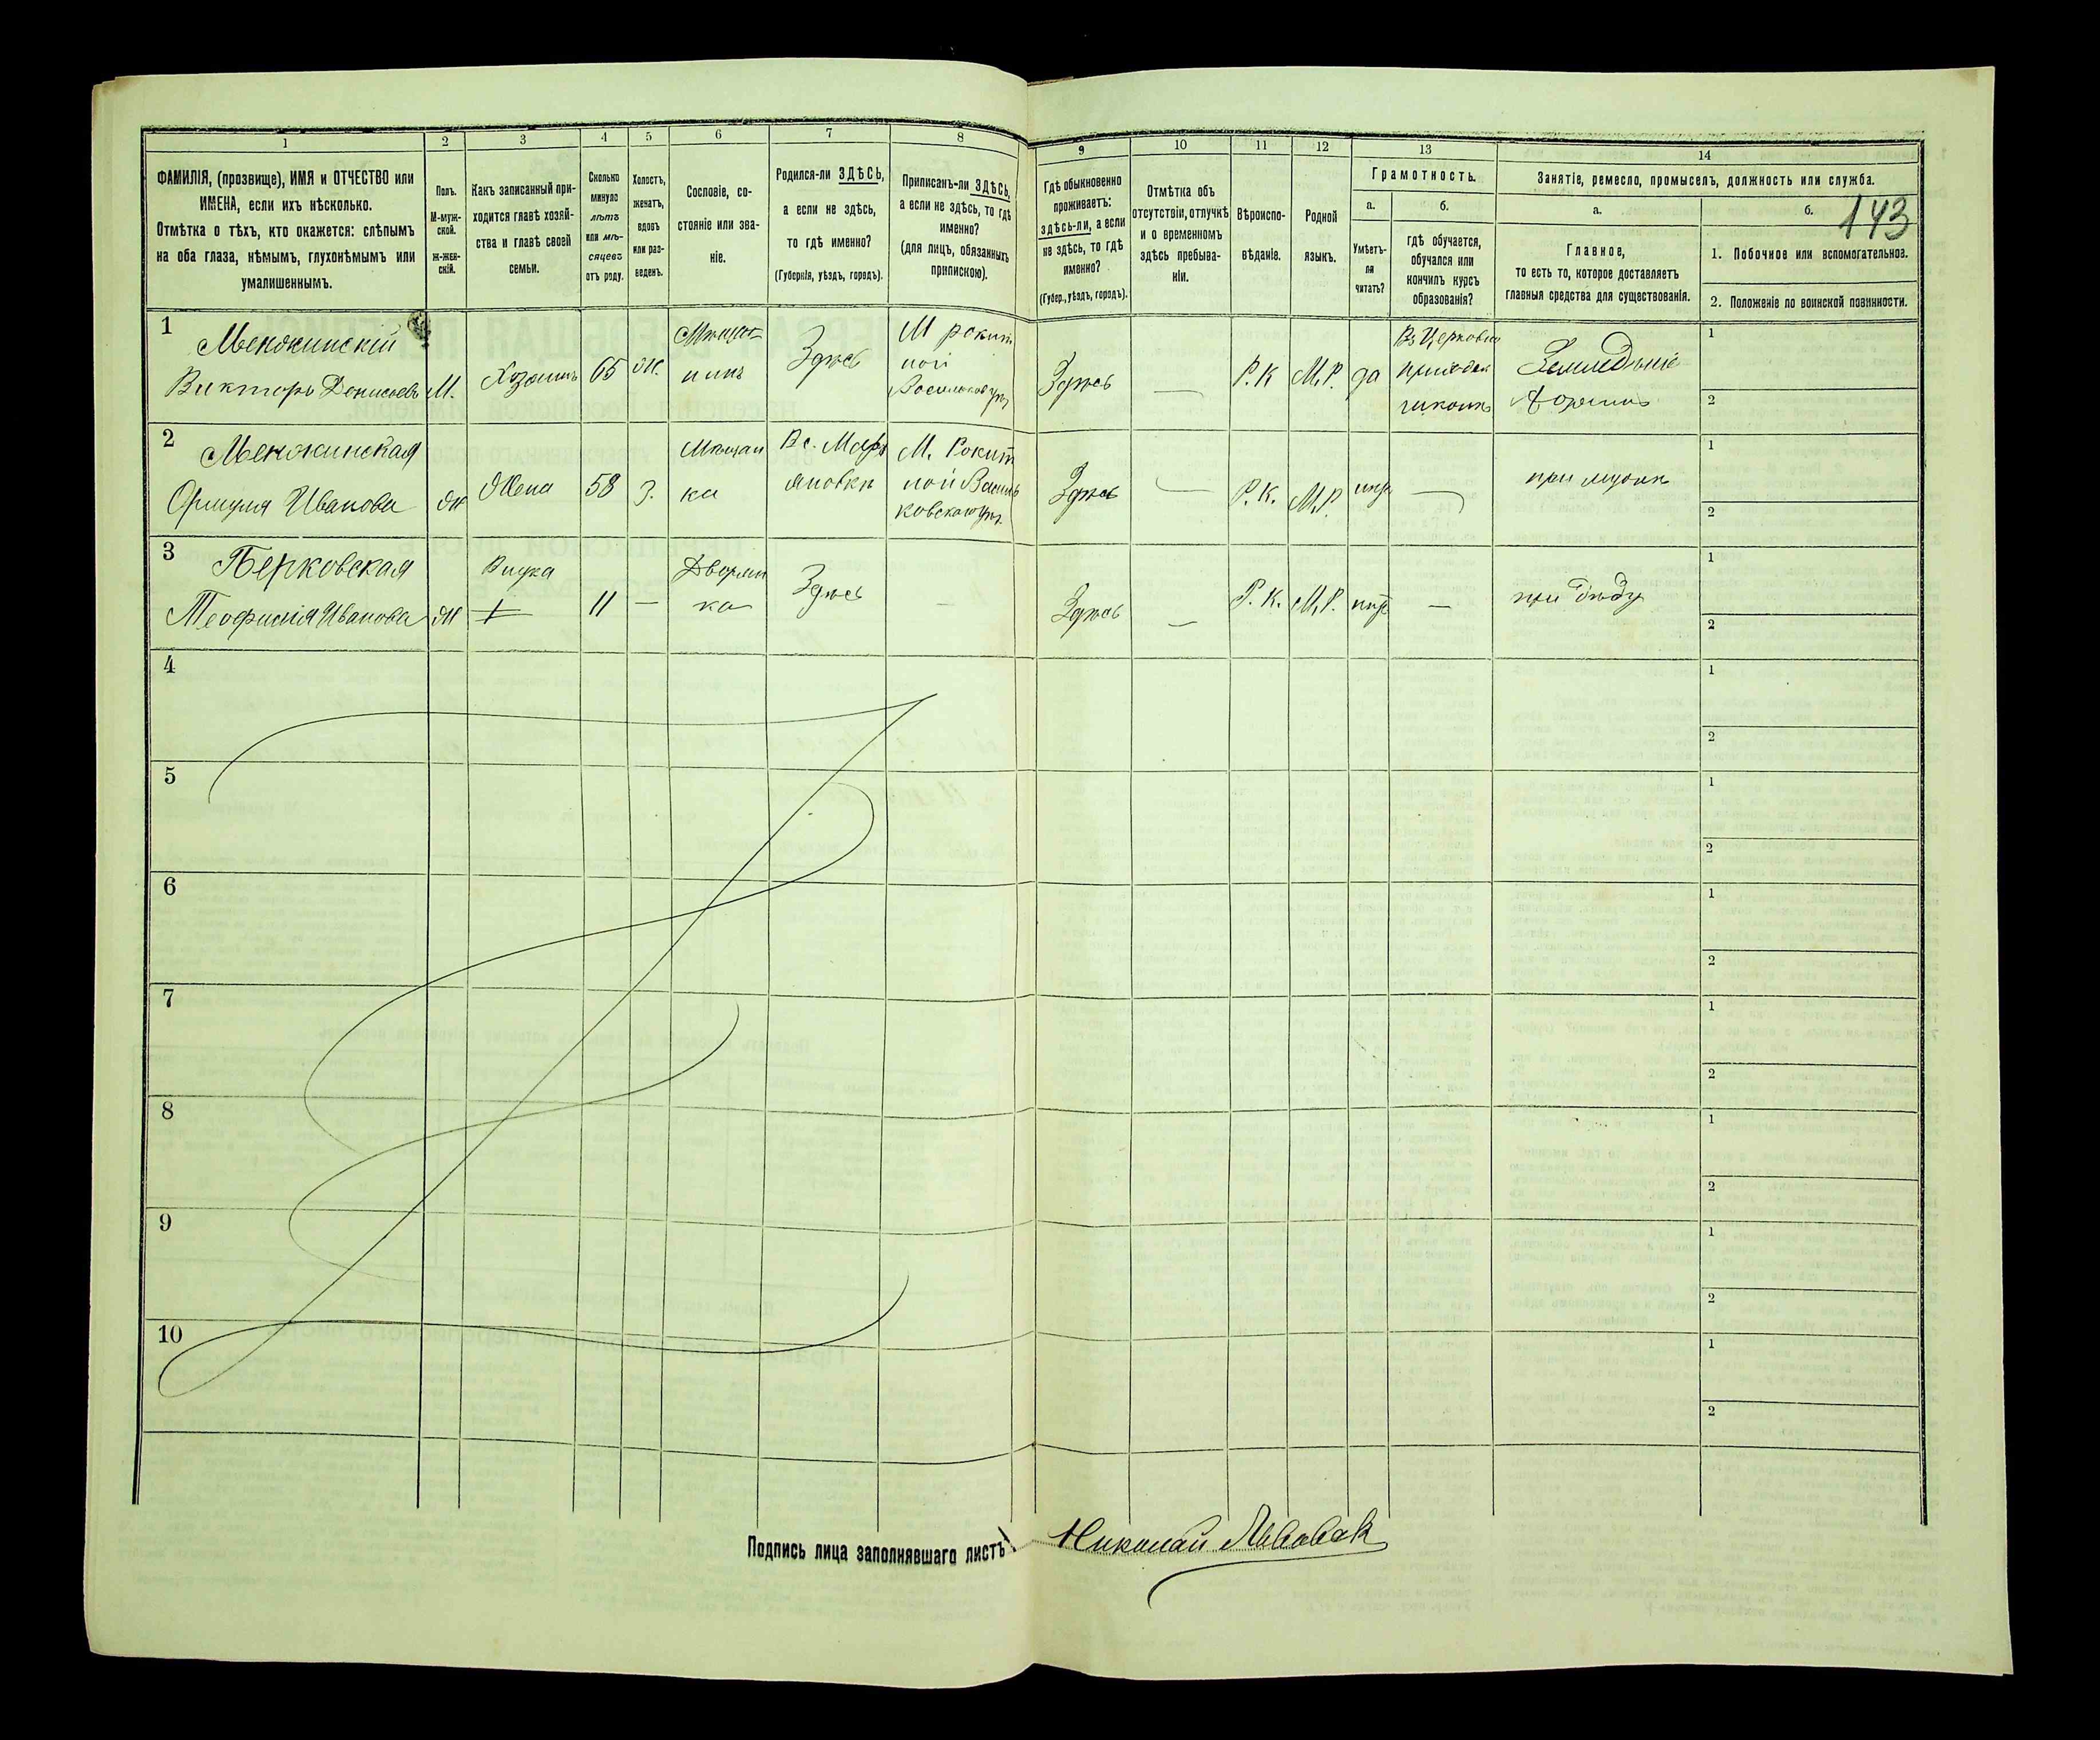 1 2 3 4 5 6 7 8 9 10 11 12 13 14
ФАМИЛІЯ, (прозвище), ИМЯ и ОТЧЕСТВО или
ИМЕНА, если ихъ нѣсколько.
Отмѣтка о тѣхъ, кто окажется: слѣпымъ
на оба глаза, нѣмымъ, глухонѣмымъ или
умалишеннымъ.
Полъ.
М-муж-
ской.
Ж-жен-
скій.
Какъ записанный при-
ходится главѣ хозяй-
ства и главѣ своей
семьи.
Сколько
минуло
лѣтъ
или мѣ-
сяцевъ
отъ роду.
Холостъ,
женатъ,
вдовъ
или раз-
веденъ.
Сословіе, со-
стояніе или зва-
ніе.
Родился-ли ЗДѢСЬ,
а если не здѣсь,
то гдѣ именно?
(Губернія, уѣздъ, городъ).
Приписанъ-ли ЗДѢСЬ,
а если не здѣсь, то гдѣ
именно?
(для лицъ, обязанныхъ
припискою).
Гдѣ обыкновенно
проживаетъ:
здѣсь-ли, а если
не здѣсь, то гдѣ
именно?
(Губер., уѣздъ, городъ).
Отмѣтка объ
отсутствіи, отлучкѣ
и о временномъ
здѣсь пребыва-
ніи.
Вѣроиспо-
вѣданіе.
Родной
языкъ.
Грамотность.
а.
Умѣетъ-
ли
читать?
б.
гдѣ обучается,
обучался или
кончилъ курсъ
образованія?
Занятіе, ремесло, промыселъ, должность или служба.
а.
Главное,
то есть то, которое доставляетъ
главныя средства для существованія.
б.
143
1. Побочное или вспомогательное.
2. Положеніе по воинской повинности.
1
Менжинскій
Викторъ Денисовъ
М.
Хозяинъ
65
ж.
Мѣща-
нинъ
Здѣсь
М рокит
ной
Здѣсь
—
Р. К
М. Р.
да
Въ Церковно
приход
школѣ
Земледѣліе
1
2
2
Менжинская
Иванова
ж
Жена
58
З.
Мѣщан
ка
М. Рокит
ной Василь
ковскаго у.
Здѣсь
—
Р. К.
М. Р.
—
при мужѣ
1
2
3
Берковская
Теофилія Иванова
ж
Внучка
11
—
Дворян
ка
Здѣсь
—
Здѣсь
—
Р. К.
М. Р.
—
при дѣду
1
2
4
1
2
5
1
2
6
1
2
7
1
2
8
1
2
9
1
2
10
1
2
Подпись лица заполнявшаго листъ
Николай